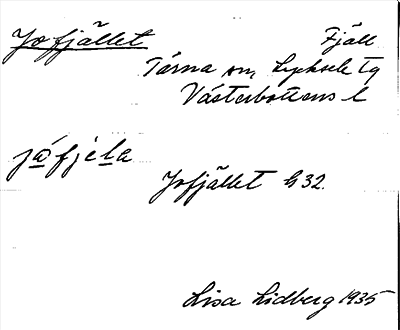 Jofjället Fjäll
Tärna sn, Lycksele Tg
Västerbottens l
jo̲´fjel̲a
Jofjället G32.
Lisa Lidberg 1935